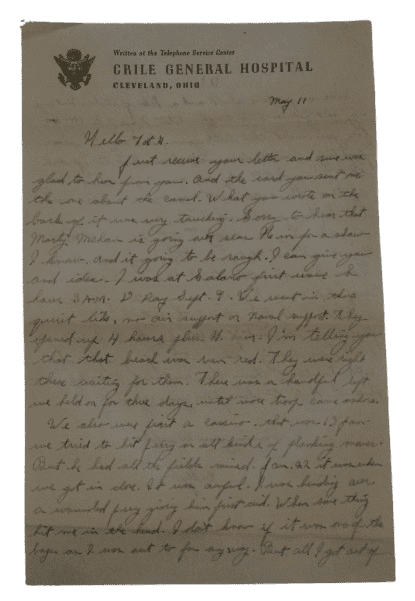 Written at the Telephone Service Center
CRILE GENERAL HOSPITAL
CLEVELAND, OHIO
May 11
Hello
Just receive your letter and sure was
glad to hear from you. And the card you sent me
the one about the camel. What you wrote on the
back of it was very touching. Sorry to hear that
Marty is going over seas. He in for a show
I know. And it going to be rough. I can give you
and idea. I was at Salerno first wave H
hour 3 A.M. D Day Sept. 9. We went in there
quiet like, no air support or Naval support. They
4 hours plus H I'm telling you
that that beach was run red. They were right
there waiting for them. There was a handful left
we held on for three days until more troop came ashore.
We also was first a cassino. that was 13 Jan.
we tried to hit jerry in all kinds of flanking maner.
But he had all the fields mined. Jan. 22 it was when
we got in close. It was awful. I was bending over
a wounded giving him first aid. When some thing
hit me in the head. I dont know if it was one of the
boys as I was out to far any way. But all I got out of